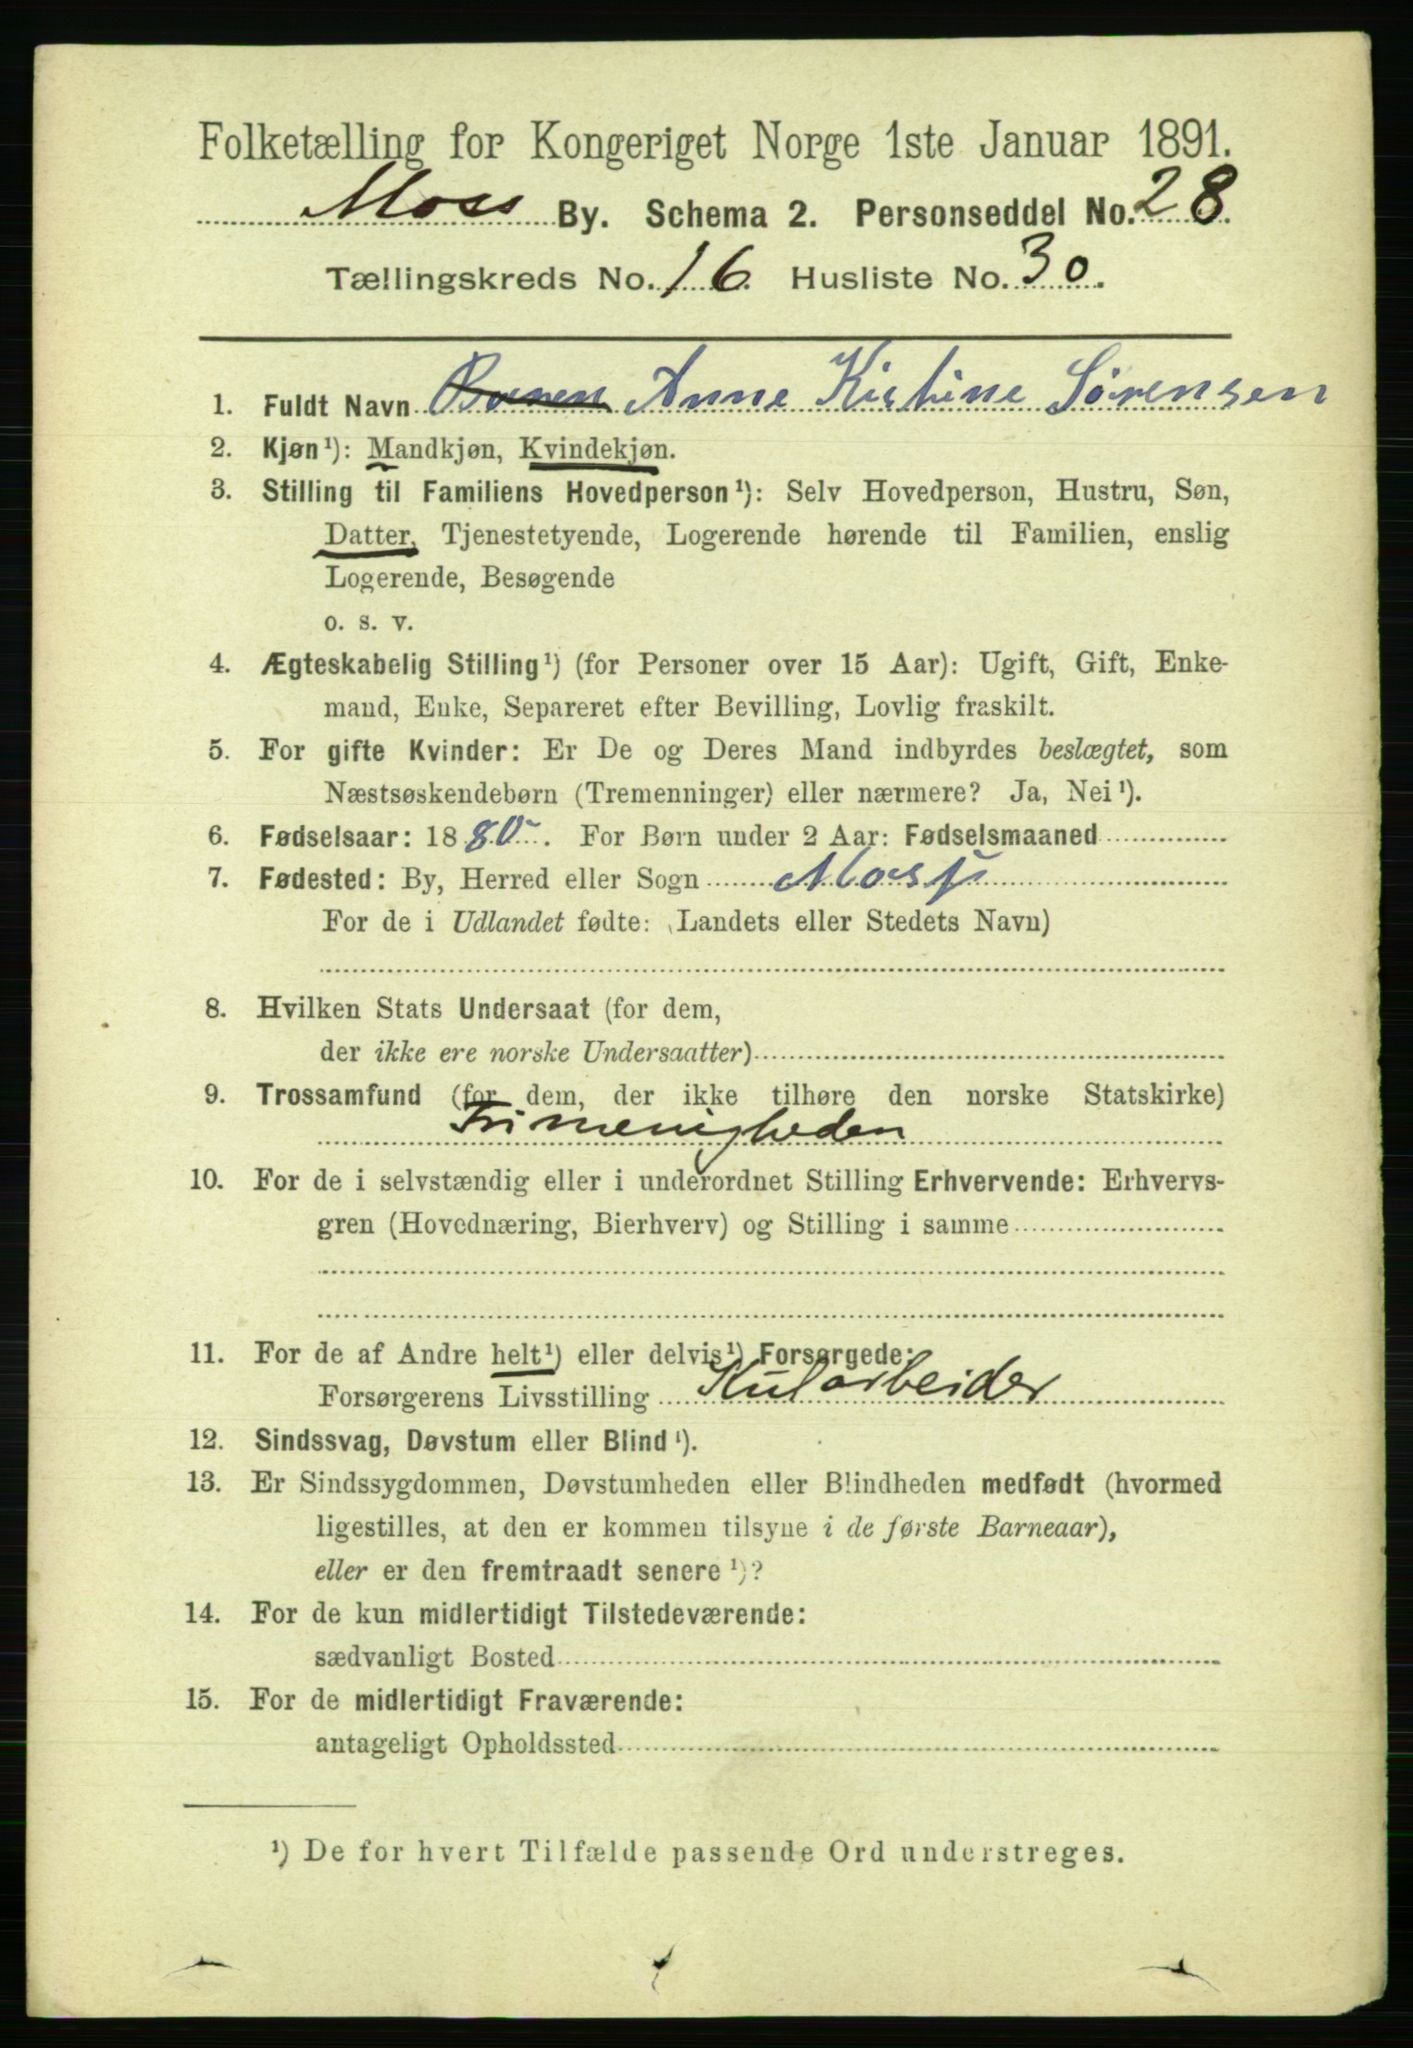 Folketælling for Kongeriget Norge 1ste Januar 1891.
Moss By. Schema 2. Personseddel No. 28.
Tællingskreds No. 16. Husliste No. 30.
1. Fuldt Navn Anne Kistine Sørensen
2. Kjøn¹): Mandkjøn, Kvindekjøn.
3. Stilling til Familiens Hovedperson¹): Selv Hovedperson, Hustru, Søn,
Datter, Tjenestetyende, Logerende hørende til Familien, enslig
Logerende, Besøgende
o. s. v.
4. Ægteskabelig Stilling¹) (for Personer over 15 Aar): Ugift, Gift, Enke-
mand, Enke, Separeret efter Bevilling, Lovlig fraskilt.
5. For gifte Kvinder: Er De og Deres Mand indbyrdes beslægtet, som
Næstsøskendebørn (Tremenninger) eller nærmere? Ja, Nei¹).
6. Fødselsaar: 1880. For Børn under 2 Aar: Fødselsmaaned
7. Fødested: By, Herred eller Sogn Moss
For de i Udlandet fødte: (Landets eller Stedets Navn)
8. Hvilken Stats Undersaat (for dem,
der ikke ere norske Undersaatter)
9. Trossamfund (for dem, der ikke tilhøre den norske Statskirke)
Frimenigheden
10. For de i selvstændig eller i underordnet Stilling Erhvervende: Erhvervs-
gren (Hovednæring, Bierhverv) og Stilling i samme
11. For de af Andre helt¹) eller delvis¹) Forsørgede:
Forsørgerens Livsstilling Kularbeider
12. Sindssvag, Døvstum eller Blind¹).
13. Er Sindssygdommen, Døvstumheden eller Blindheden medfødt (hvormed
ligestilles, at den er kommen tilsyne i de første Barneaar),
eller er den fremtraadt senere¹)?
14. For de kun midlertidigt Tilstedeværende:
sædvanligt Bosted
15. For de midlertidigt Fraværende:
antageligt Opholdssted
¹) De for hvert Tilfælde passende Ord understreges.